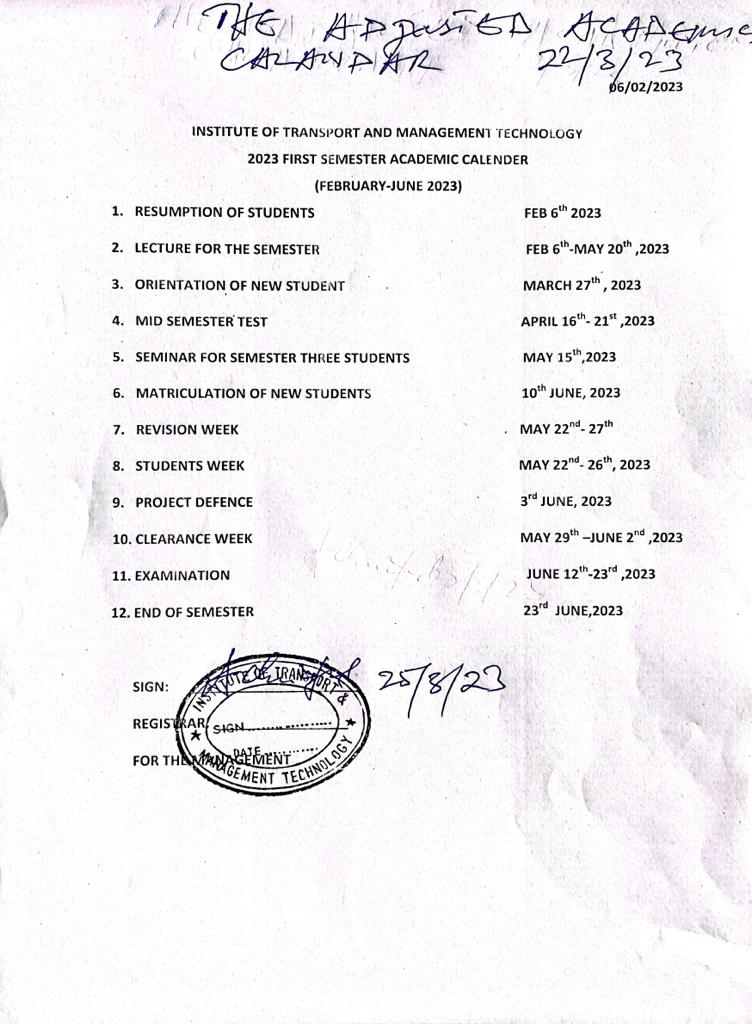 THE ADJUSTED ACADEMIC
CALANDAR 22/3/23
06/02/2023
INSTITUTE OF TRANSPORT AND MANAGEMENT TECHNOLOGY
2023 FIRST SEMESTER ACADEMIC CALENDER
(FEBRUARY-JUNE 2023)
1. RESUMPTION OF STUDENTS FEB 6th 2023
2. LECTURE FOR THE SEMESTER FEB 6th-MAY 20th ,2023
3. ORIENTATION OF NEW STUDENT MARCH 27th , 2023
4. MID SEMESTER TEST APRIL 16th- 21st ,2023
5. SEMINAR FOR SEMESTER THREE STUDENTS MAY 15th,2023
6. MATRICULATION OF NEW STUDENTS 10th JUNE, 2023
7. REVISION WEEK MAY 22nd- 27th
8. STUDENTS WEEK MAY 22nd- 26th, 2023
9. PROJECT DEFENCE 3rd JUNE, 2023
10. CLEARANCE WEEK MAY 29th –JUNE 2nd ,2023
11. EXAMINATION JUNE 12th-23rd ,2023
12. END OF SEMESTER 23rd JUNE,2023
SIGN: 25/3/23
REGISTRAR
FOR THE MANAGEMENT
INSTITUTE OF TRANSPORT &
SIGN
DATE
MANAGEMENT TECHNOLOGY